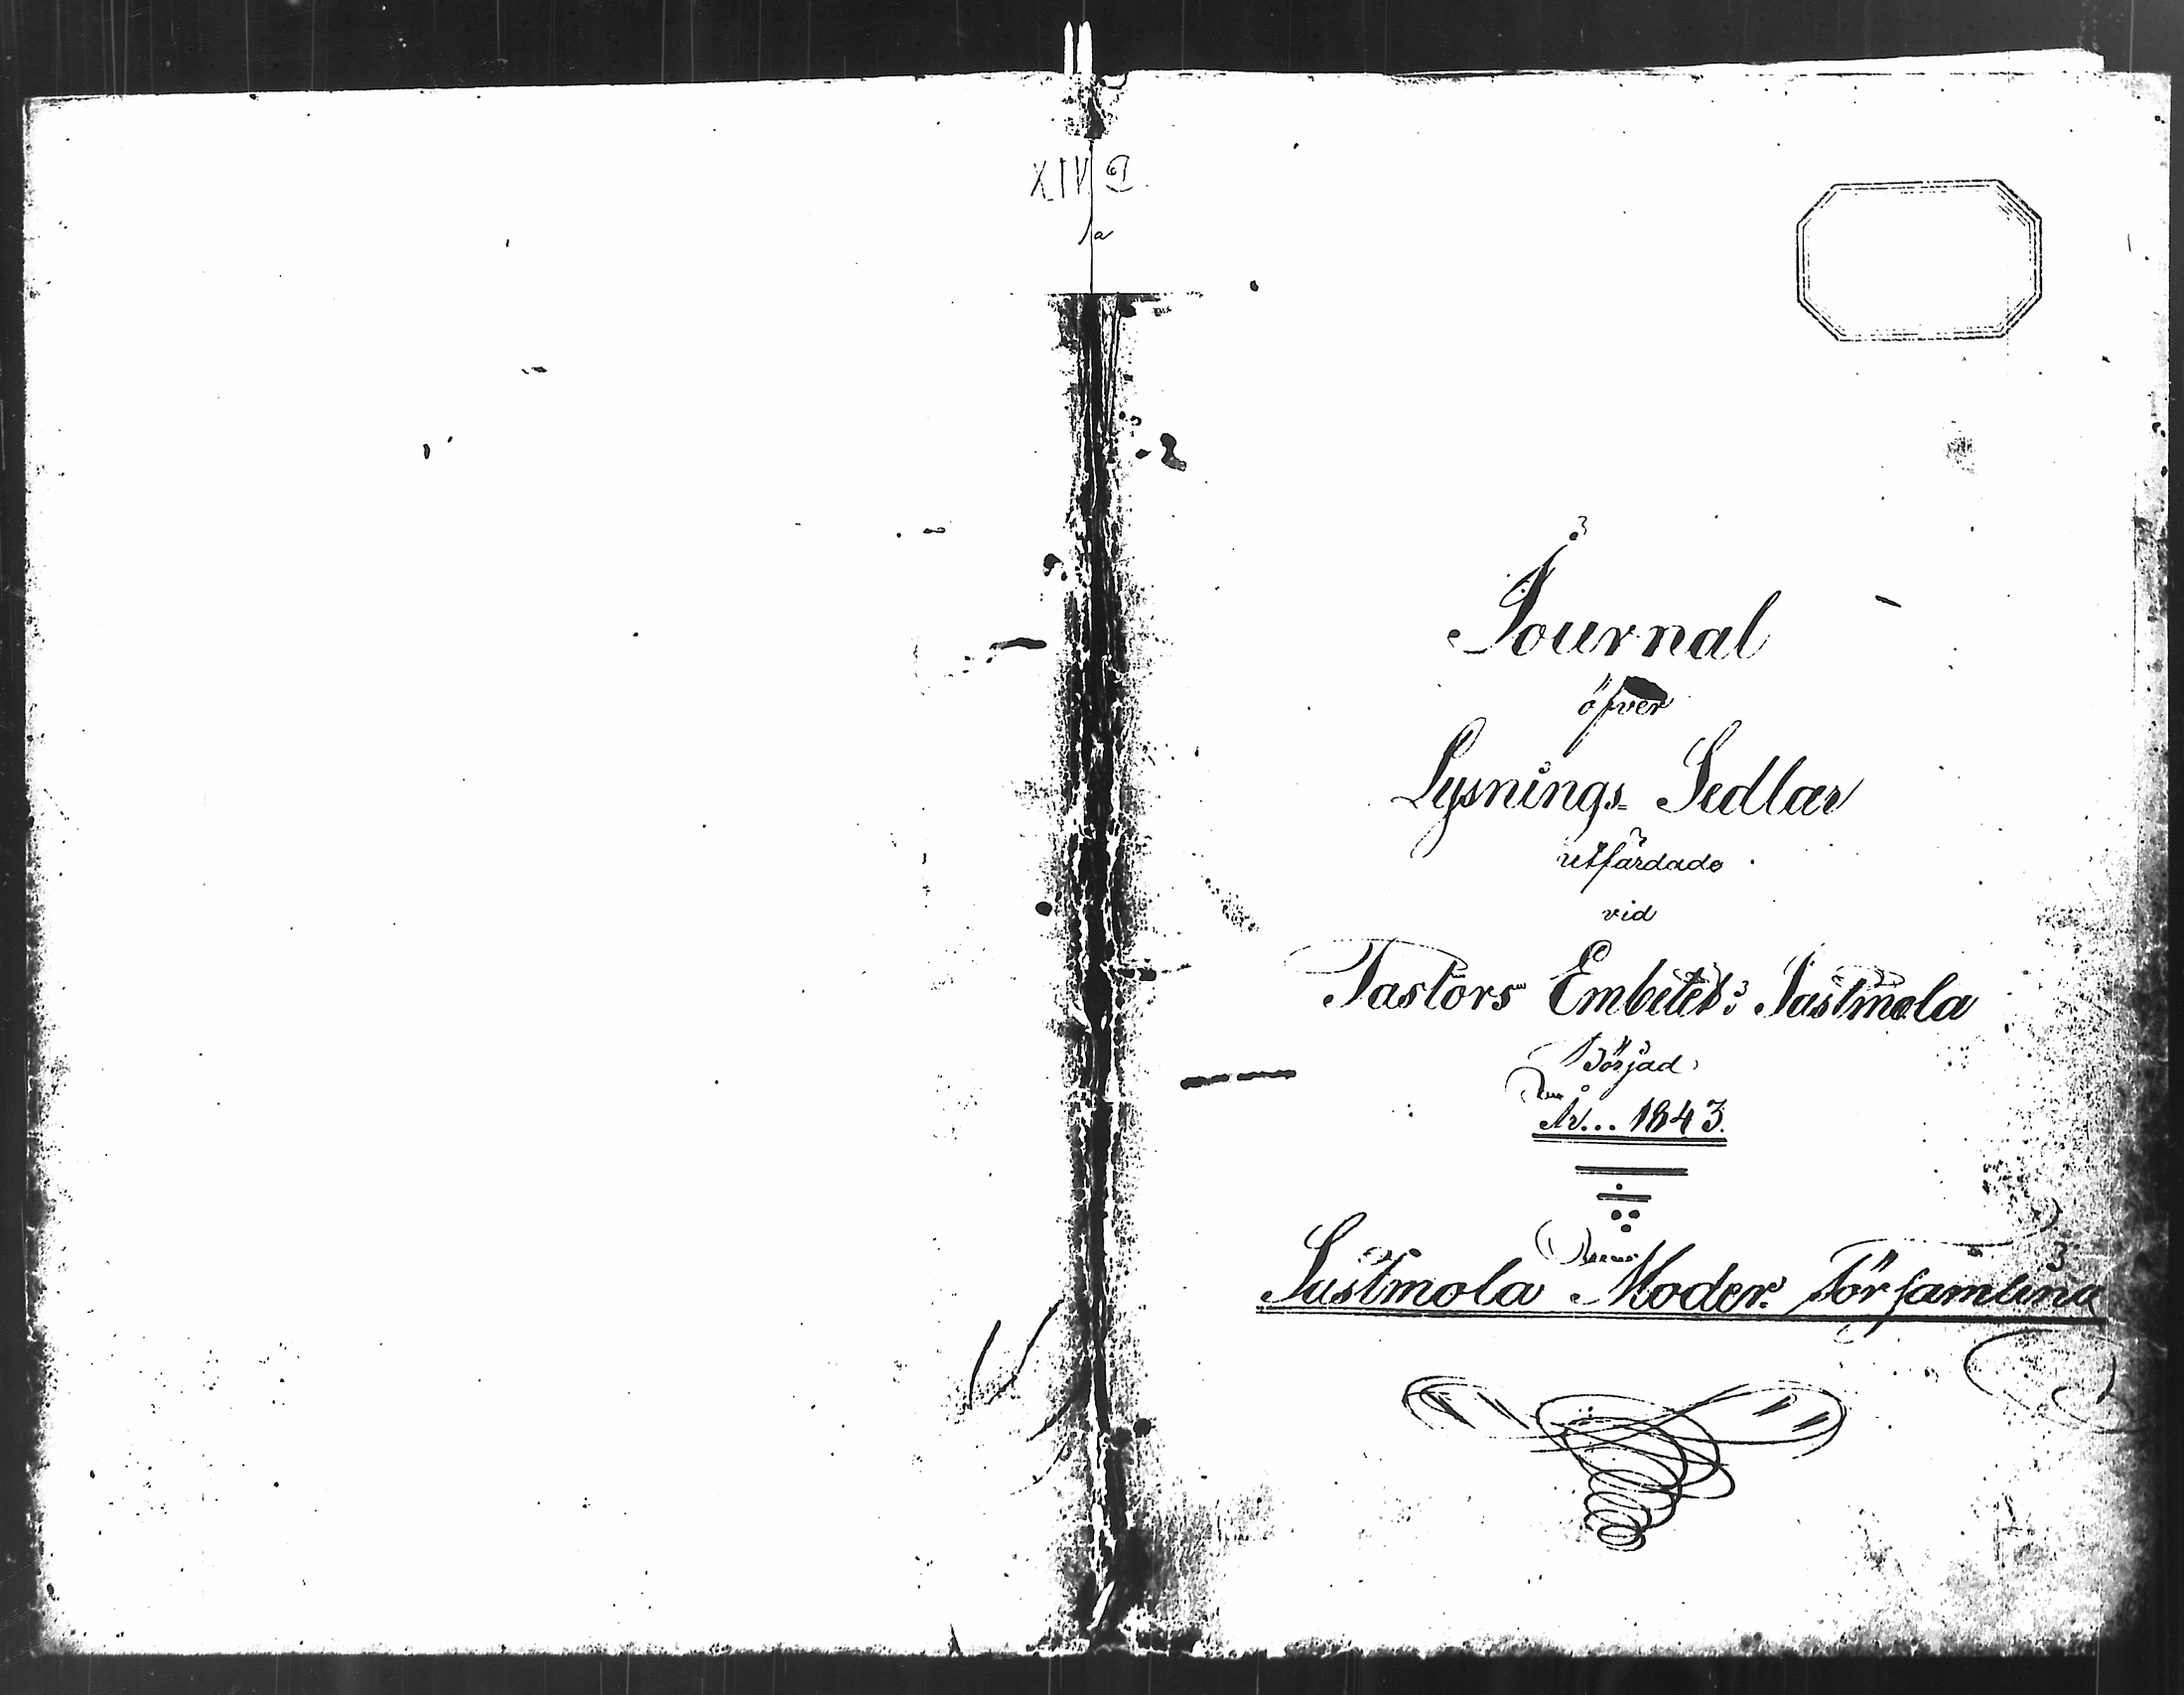 XIV
a
Journal
öfver
Lysnings-Sedlar
utfärdade
vid
Pastors Embetet i Sastmola
Börjad
År... 1843.
Sastmola Moder-Församling